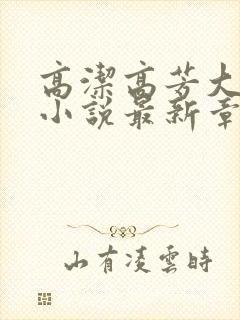 高潔高芳大
小說最新章
山有凌雲時